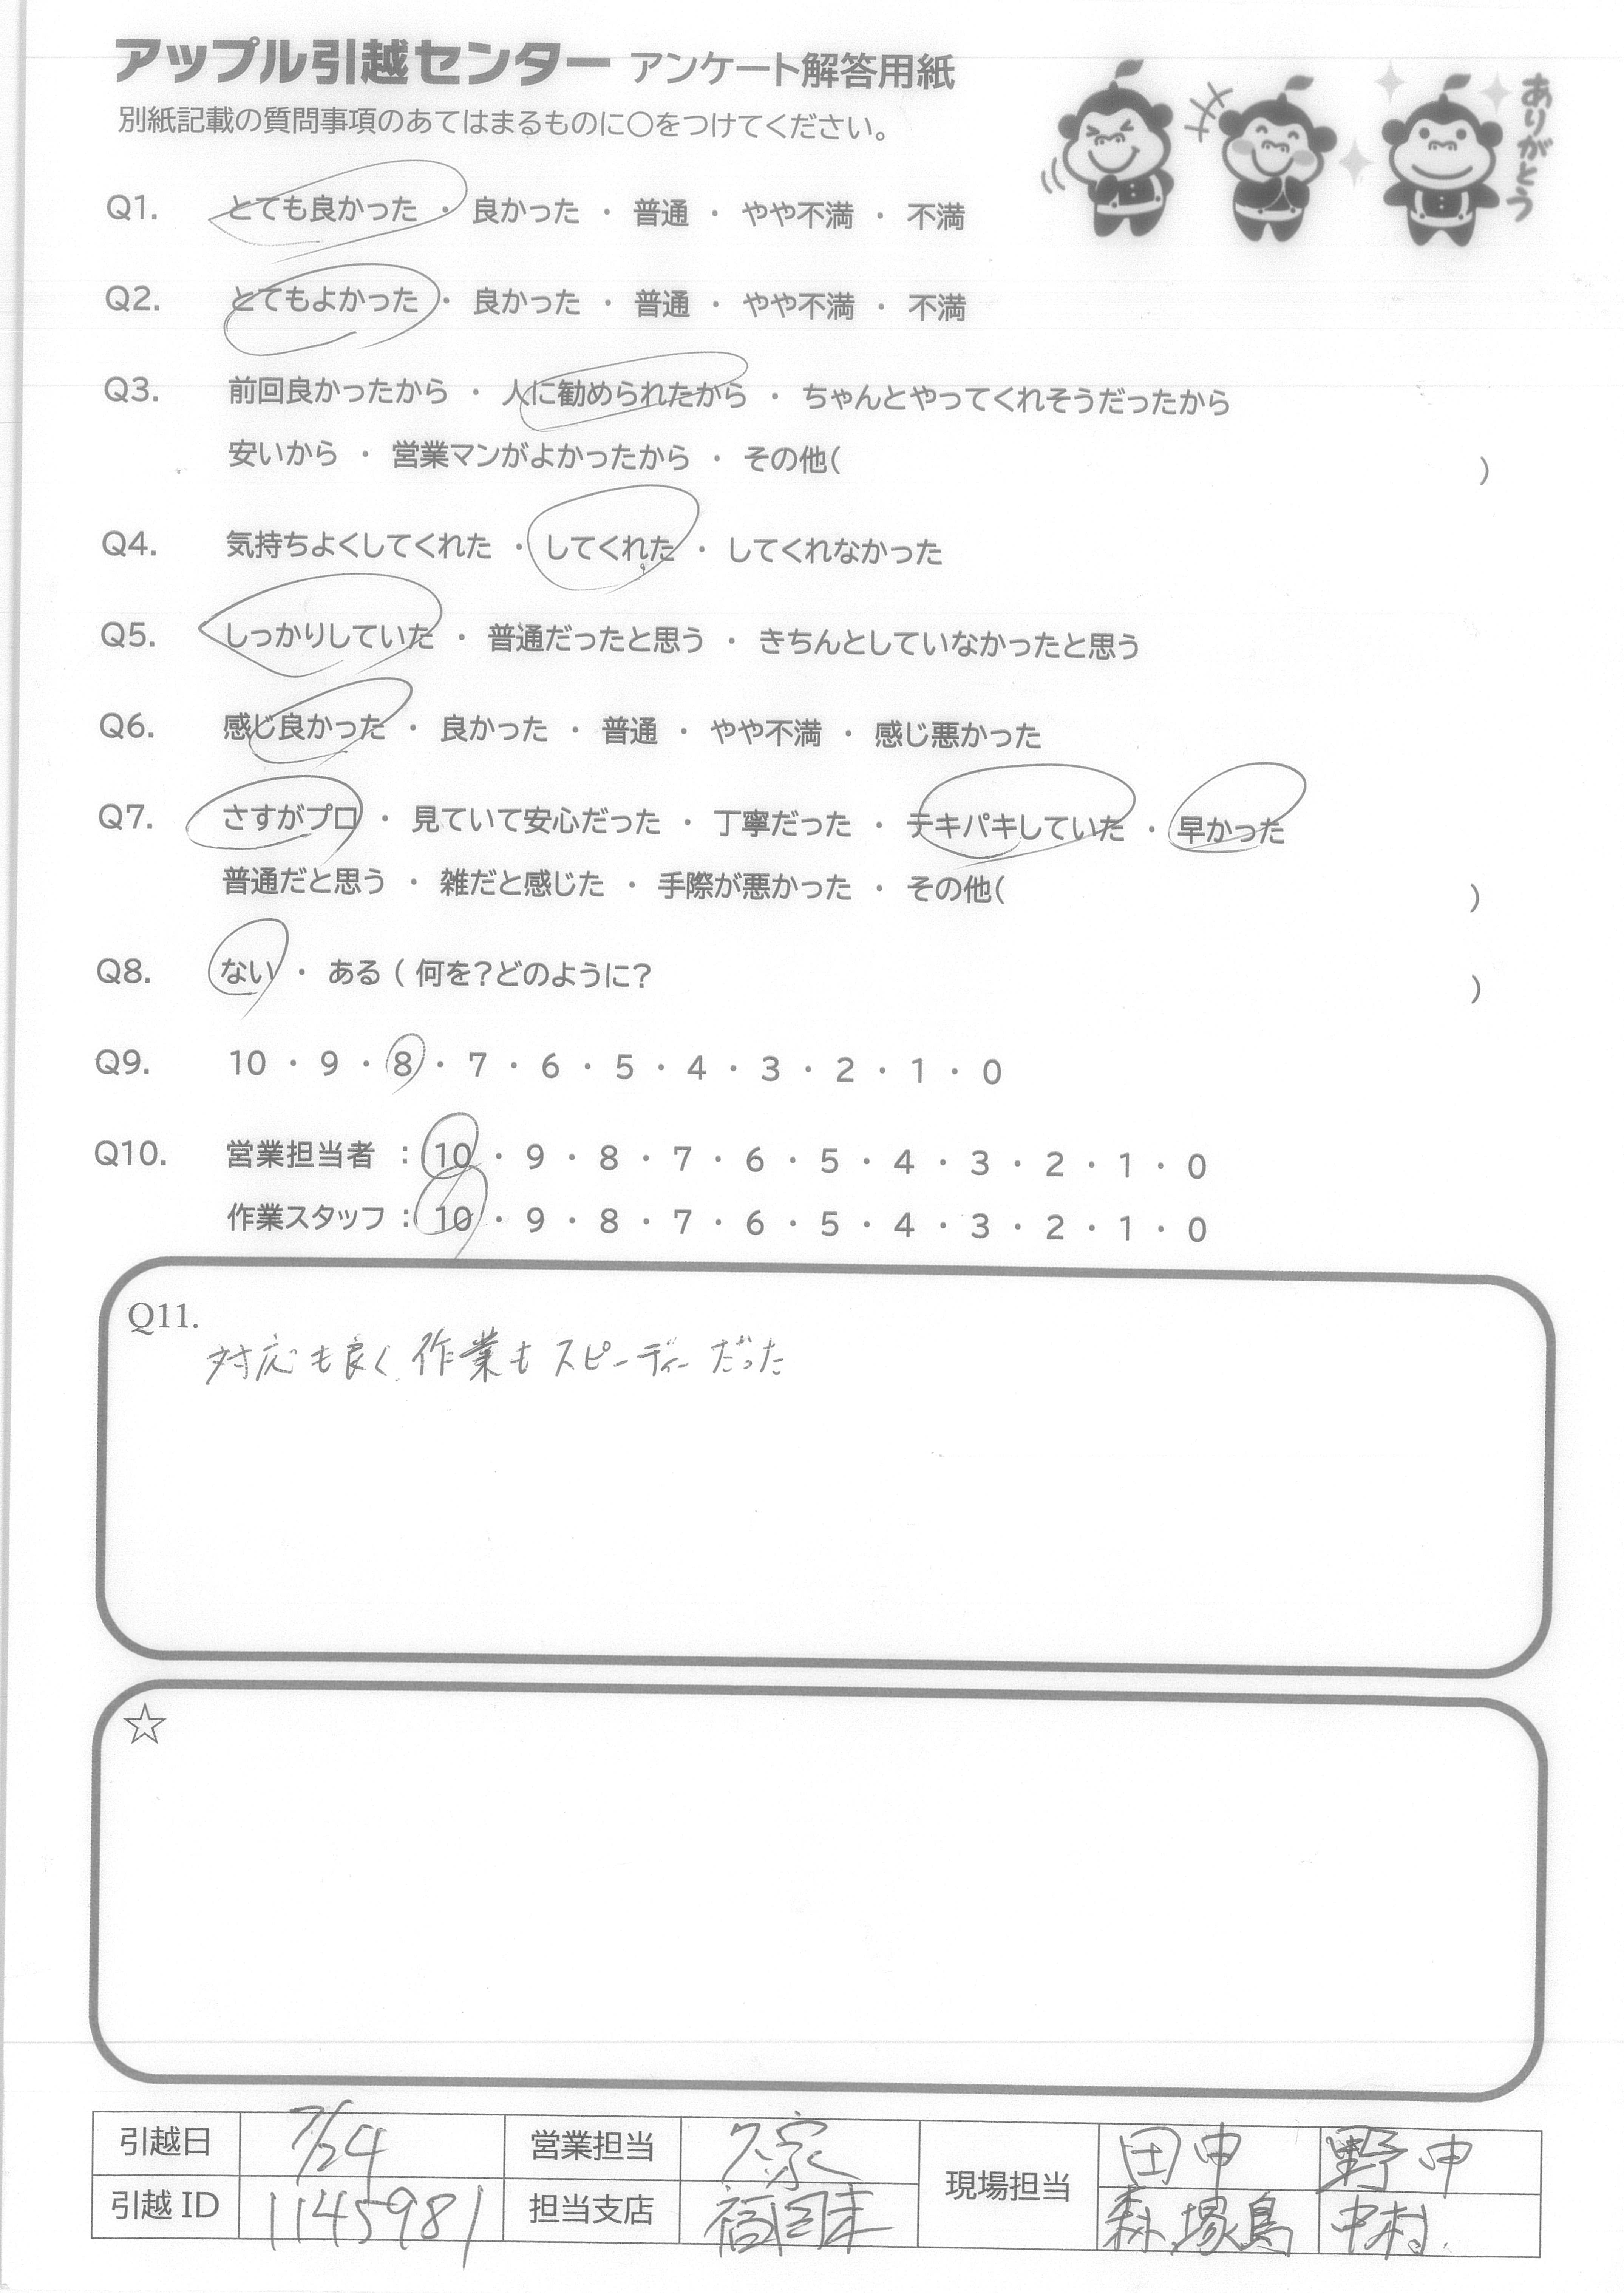 アップル引越センター アンケート解答用紙
別紙記載の質問事項のあてはまるものに○をつけてください。
ありがとう
Q1. とても良かった ・ 良かった ・ 普通 ・ やや不満 ・ 不満
Q2. とてもよかった ・ 良かった ・ 普通 ・ やや不満 ・ 不満
Q3. 前回良かったから ・ 人に勧められたから ・ ちゃんとやってくれそうだったから
安いから ・ 営業マンがよかったから ・ その他( )
Q4. 気持ちよくしてくれた ・ してくれた ・ してくれなかった
Q5. しっかりしていた ・ 普通だったと思う ・ きちんとしていなかったと思う
Q6. 感じ良かった ・ 良かった ・ 普通 ・ やや不満 ・ 感じ悪かった
Q7. さすがプロ ・ 見ていて安心だった ・ 丁寧だった ・ テキパキしていた ・ 早かった
普通だと思う ・ 雑だと感じた ・ 手際が悪かった ・ その他( )
Q8. ない ・ ある ( 何を?どのように? )
Q9. 10 ・ 9 ・ 8 ・ 7 ・ 6 ・ 5 ・ 4 ・ 3 ・ 2 ・ 1 ・ 0
Q10. 営業担当者 : 10 ・ 9 ・ 8 ・ 7 ・ 6 ・ 5 ・ 4 ・ 3 ・ 2 ・ 1 ・ 0
作業スタッフ : 10 ・ 9 ・ 8 ・ 7 ・ 6 ・ 5 ・ 4 ・ 3 ・ 2 ・ 1 ・ 0
Q11.
対応も良く、作業もスピーディーだった
☆
引越日 7/24 営業担当 久家 現場担当 田中 野中
引越ID 1145981 担当支店 福岡東 森 塚島 中村.